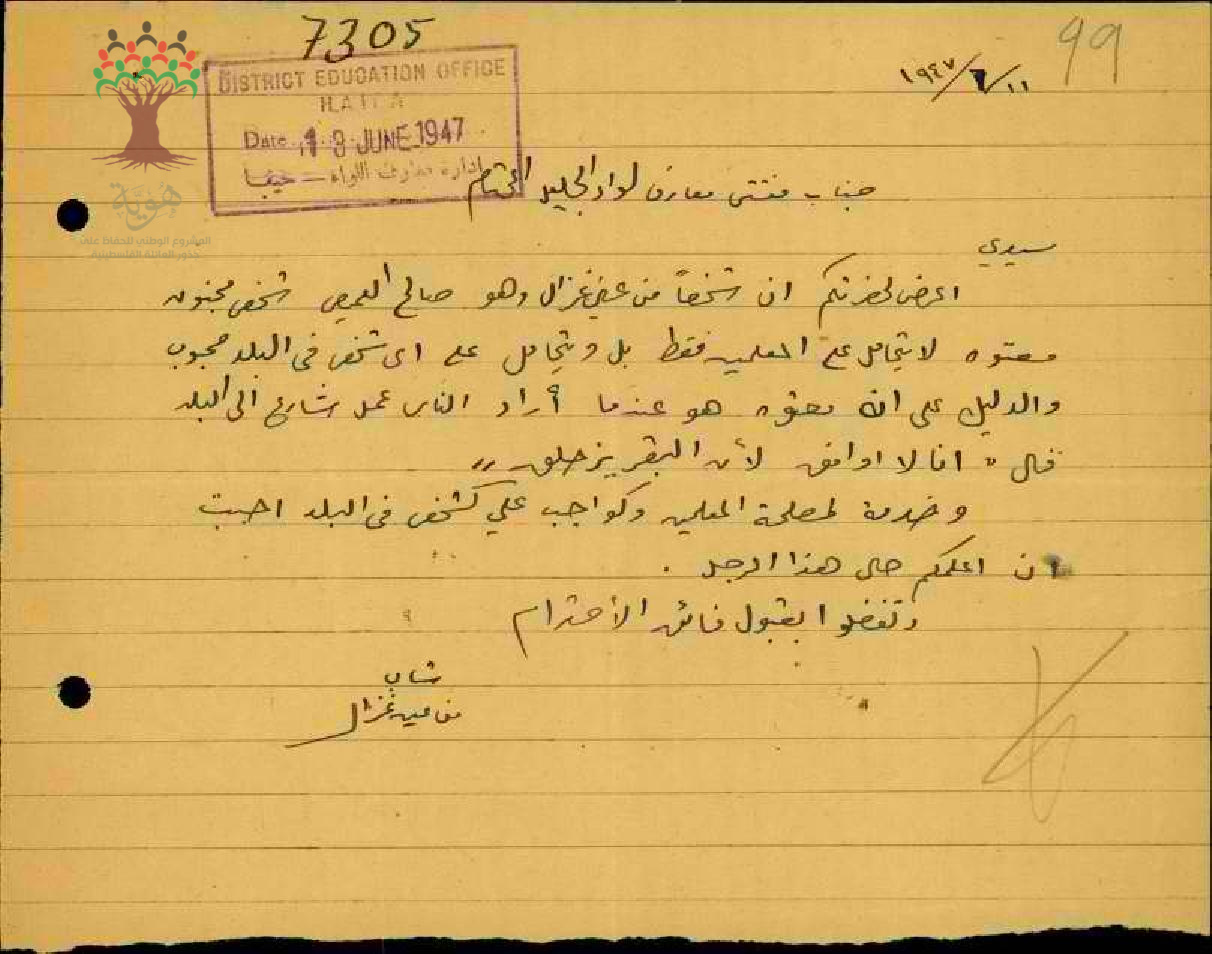 7305
99
١٩٤٧/٦/١١
DISTRICT EDUCATION OFFICE
HAIFA
Date 13 JUNE 1947
إدارة معارف اللواء — حيفا
هوية
المشروع الوطني للحفاظ على
جذور العائلة الفلسطينية
جناب مفتش معارف لواء الجليل المحترم
سيدي
اعرض لحضرتكم ان شخصاً من عين غزال وهو صالح شخص مجنون
معتوه لا يتحامل على المعلمين فقط بل ويتحامل على اي شخص في البلد محبوب
والدليل على انه معتوه هو عندما أراد الناس عمل شارع الى البلد
قال " انا لا اوافق لأن البقر يزحلق "
وخدمة لمصلحة المعلمين وكواجب علي كشخص في البلد احببت
ان اعلمكم حال هذا الرجل .
وتفضلوا بقبول فائق الأحترام
شاب
من عين غزال